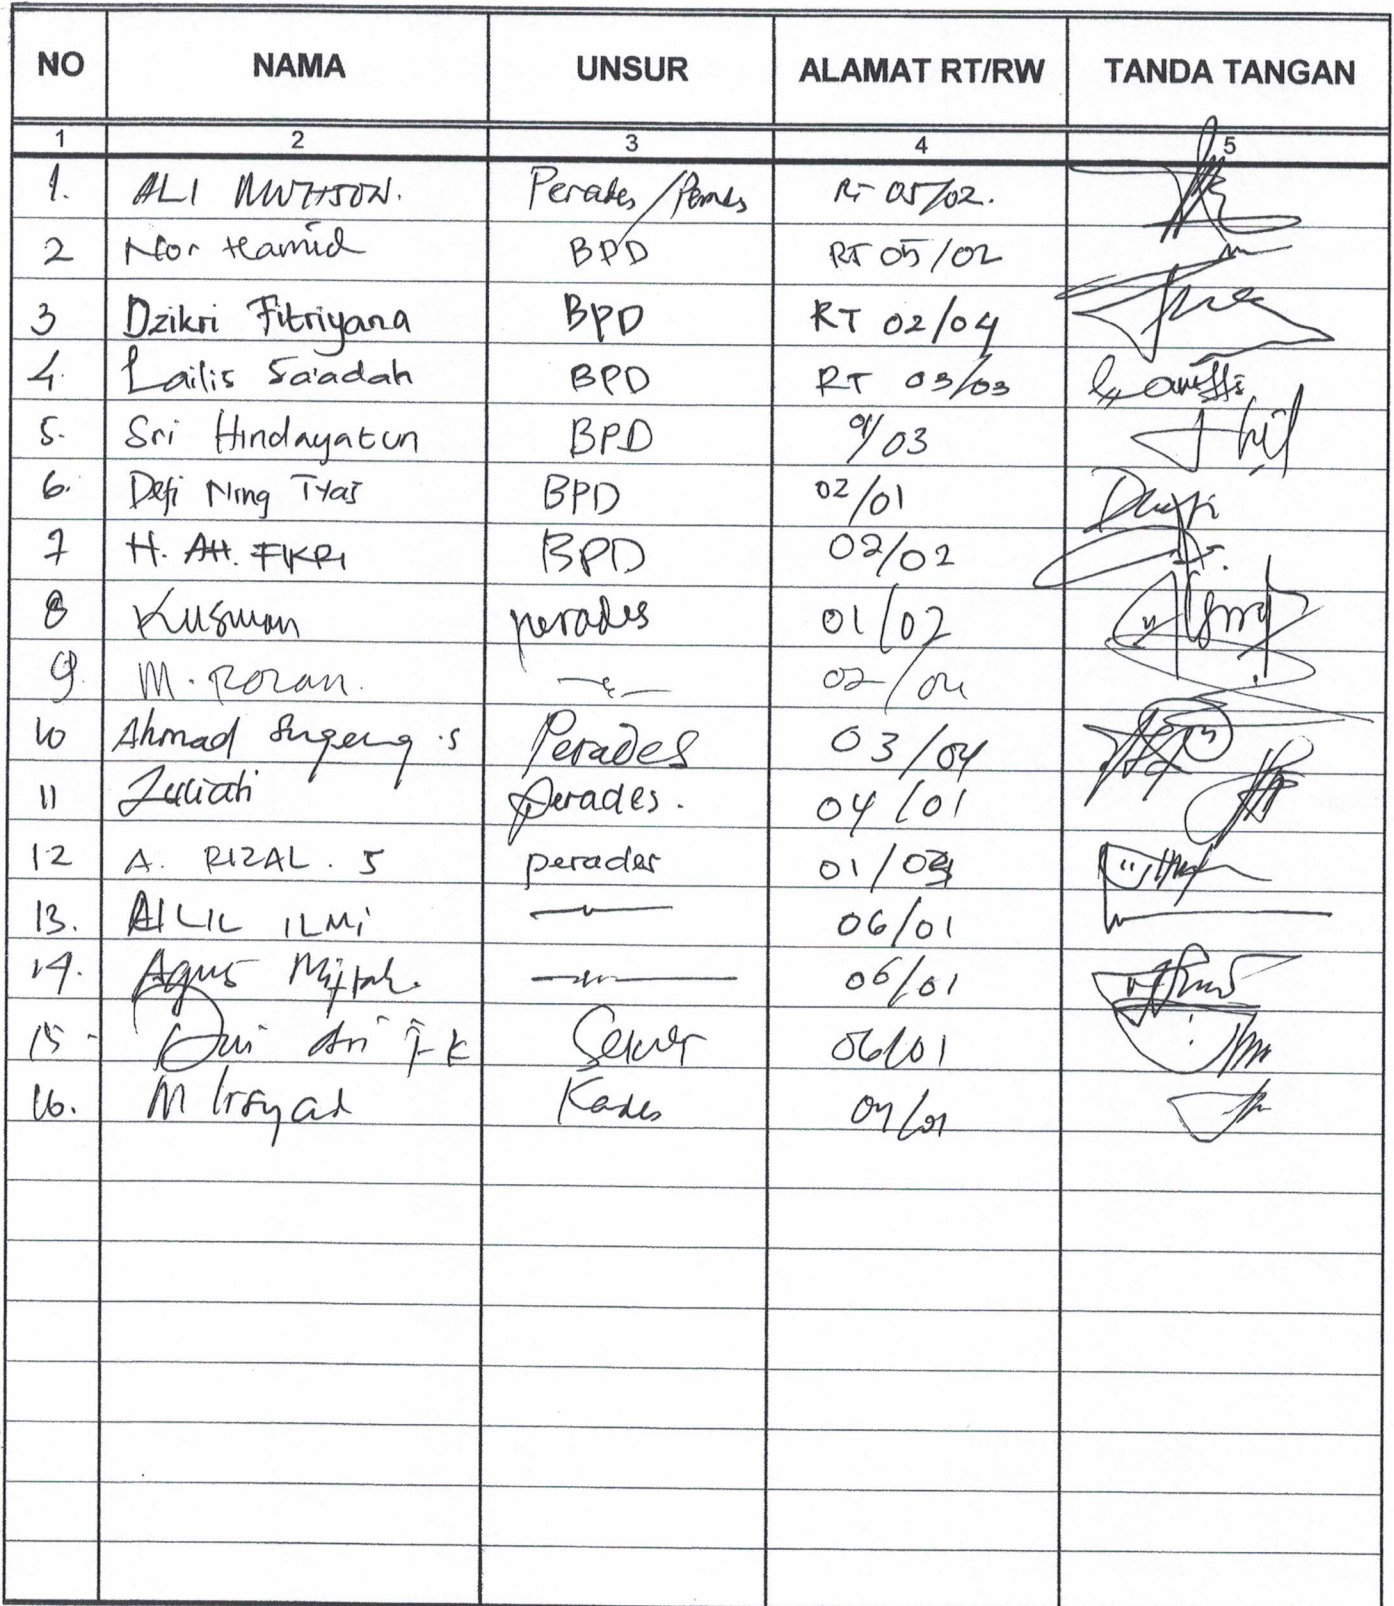 NO NAMA UNSUR ALAMAT RT/RW TANDA TANGAN
1 2 3 4 5
1. ALI Perades/Pemdes RT 05/02.
2 Nor Hamid BPD RT 05/02
3 Dzikri Fitriyana BPD RT 02/04
4. Lailis Sa'adah BPD RT 03/03
5. Sri Hindayatun BPD /03
6. Defi Ning Tyas BPD 02/01
7 H. AH. FIKRI BPD 02/02
8 Kusman perades 01/02
9. M. ROZAN. 02/04
10 Ahmad Sugeng .S Perades 03/04
11 Zuliati perades. 04/01
12 A. RIZAL. S perades 01/
13. ALLIL ILMI 06/01
14. Agus Miftah. 06/01
15 - Dwi Ari 06/01
16. M Irsyad Kades 04/01